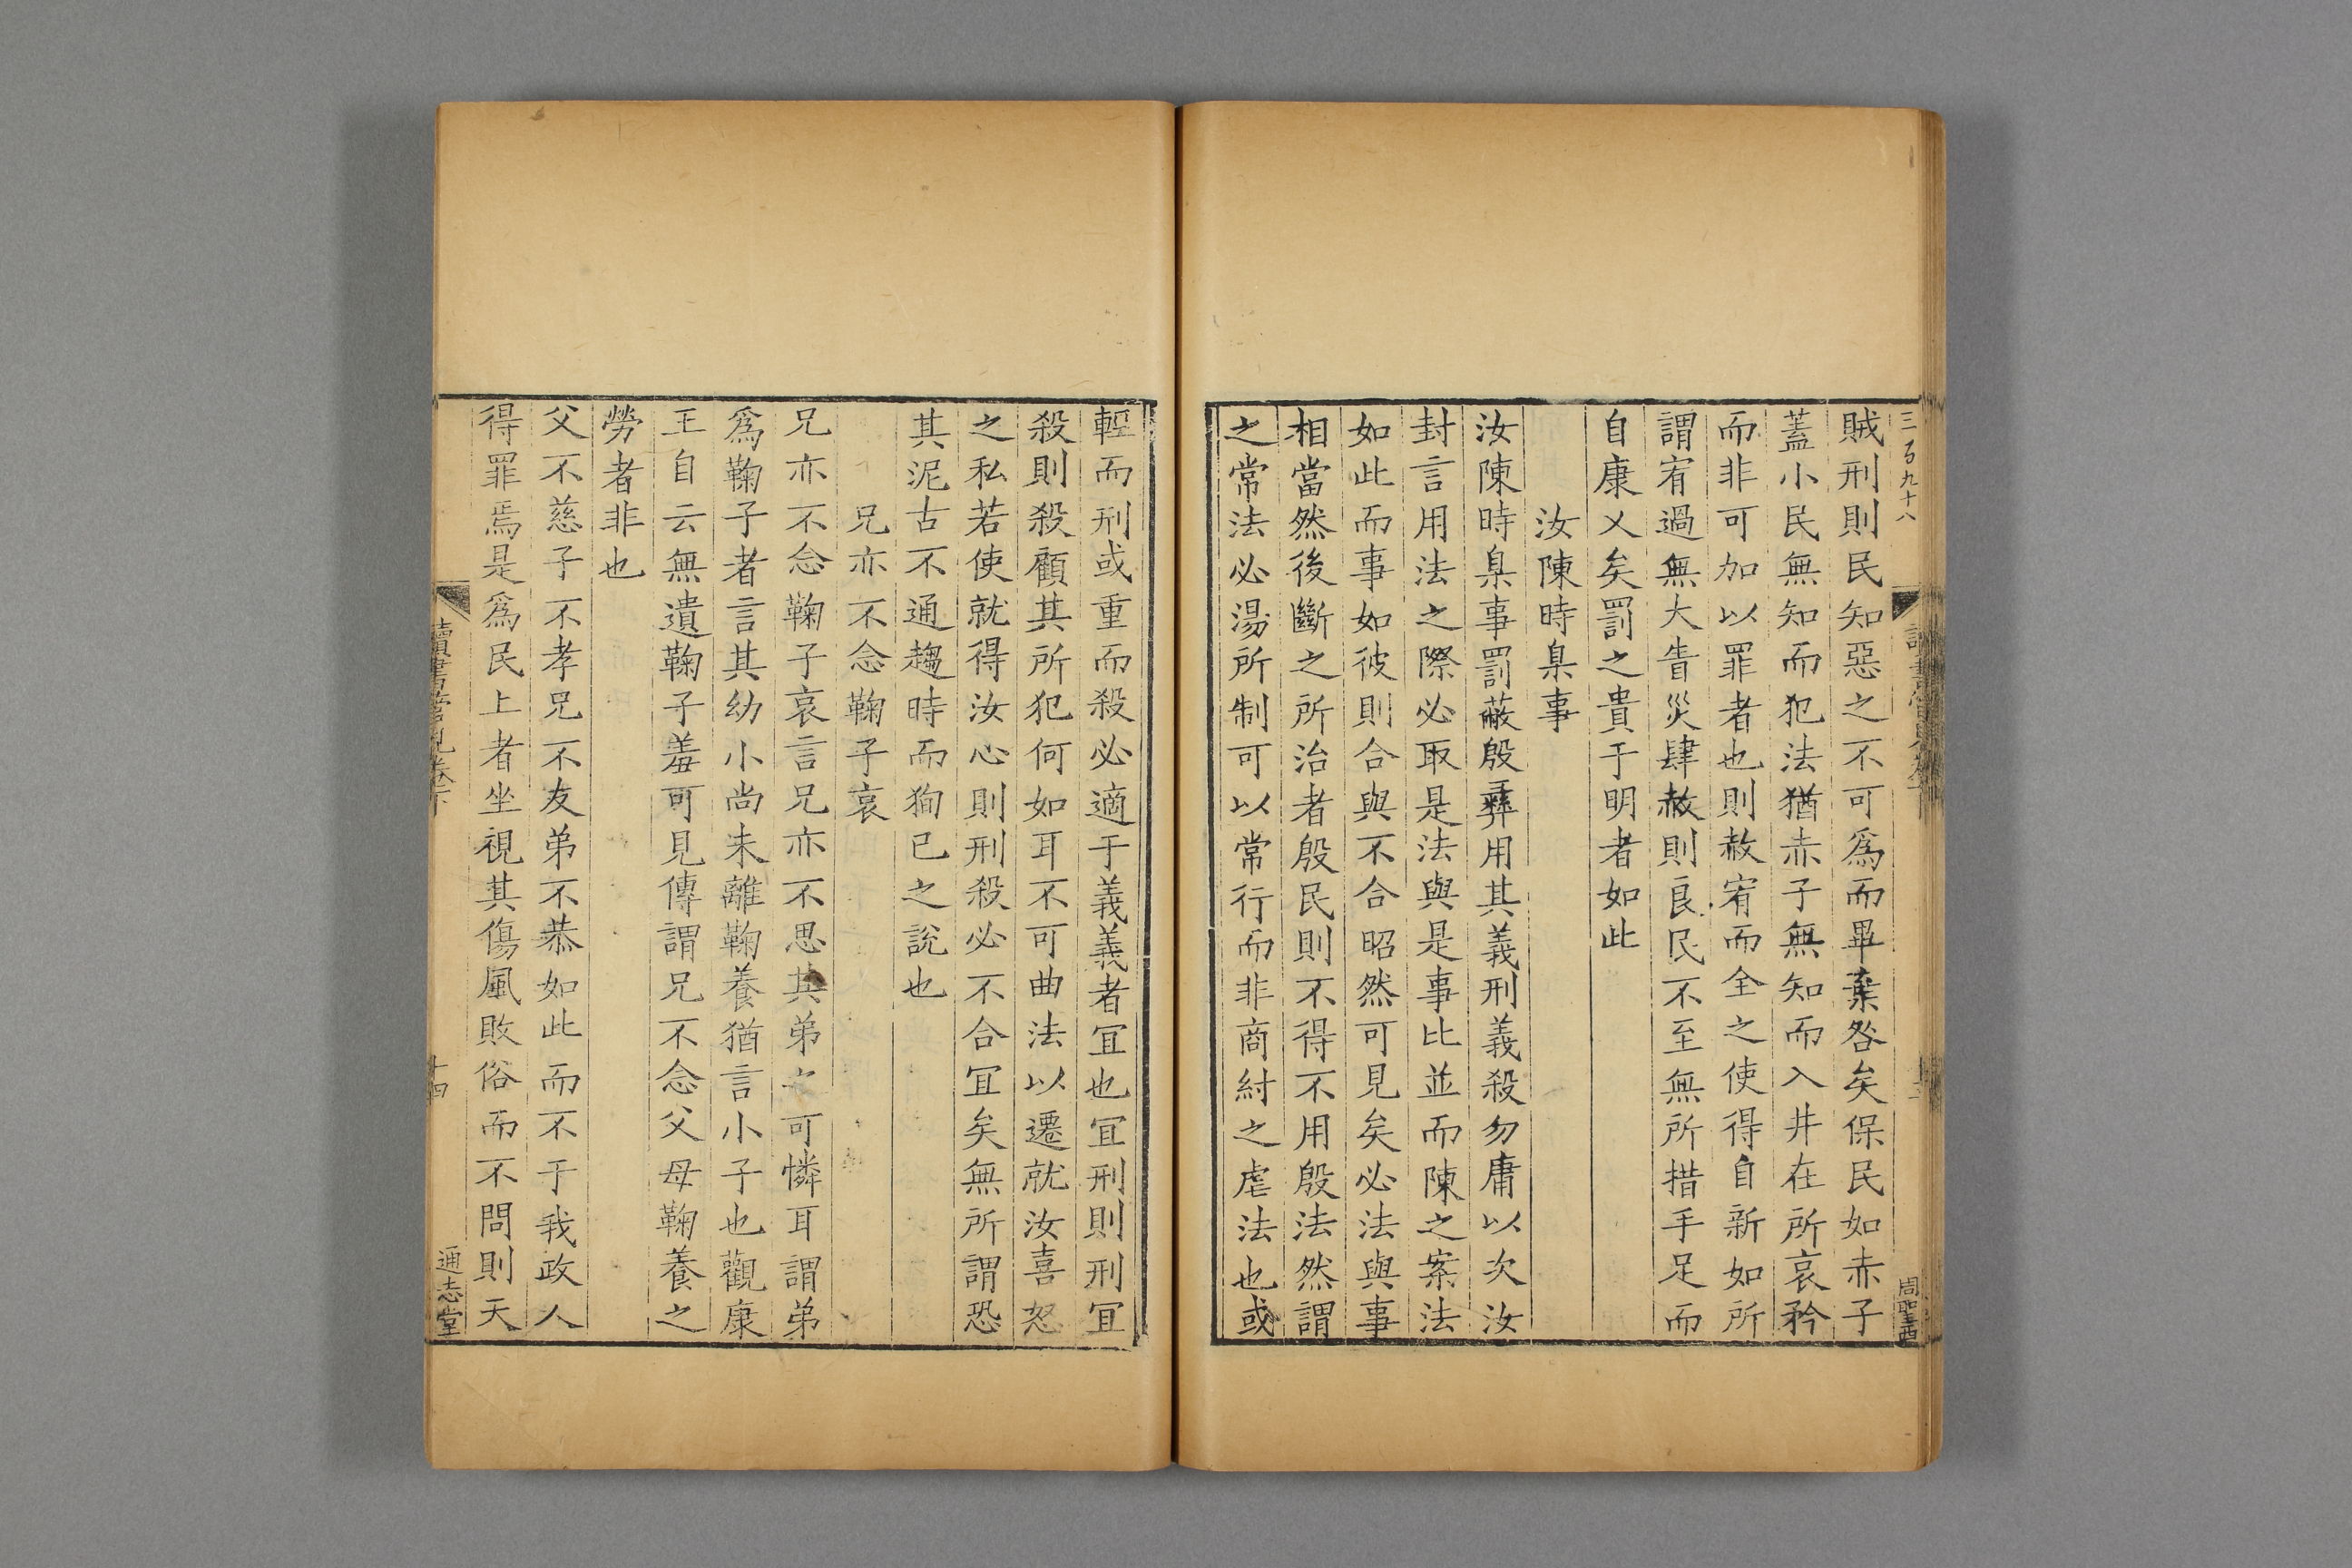 三百九十八
賊刑則民知惡之不可爲而畢棄咎矣保民如赤子
蓋小民無知而犯法猶赤子無知而入井在所哀矜
而非可加以罪者也則赦宥而全之使得自新如所
謂宥過無大眚災肆赦則良民不至無所措手足而
自康乂矣罰之貴于明者如此
汝陳時臬事
汝陳時臬事罰蔽殷彝用其義刑義殺勿庸以次汝
封言用法之際必取是法與是事比並而陳之案法
如此而事如彼則合與不合昭然可見矣必法與事
相當然後斷之所治者殷民則不得不用殷法然謂
之常法必湯所制可以常行而非商紂之虐法也或
輕而刑或重而殺必適于義義者冝也冝刑則刑冝
殺則殺顧其所犯何如耳不可曲法以遷就汝喜怒
之私若使就得汝心則刑殺必不合冝矣無所謂恐
其泥古不通趨時而狥已之說也
兄亦不念鞠子哀
兄亦不念鞠子哀言兄亦不思其弟之可憐耳謂弟
爲鞠子者言其幼小尚未離鞠養猶言小子也觀康
王自云無遺鞠子羞可見傳謂兄不念父母鞠養之
勞者非也
父不慈子不孝兄不友弟不恭如此而不于我政人
得罪焉是爲民上者坐視其傷風敗俗而不問則天
讀書管見卷下
十四
通志堂